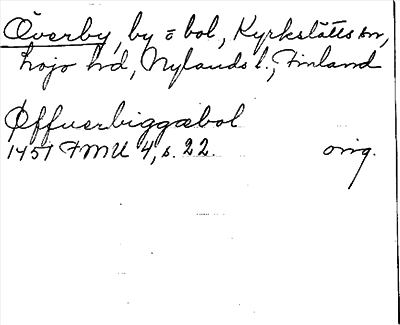 Överby, by o bol, Kyrkslätts sn,
Lojo hd, Nylands l., Finland
Øffuerbiggæbol
1451 FMU 4, s. 22. orig.